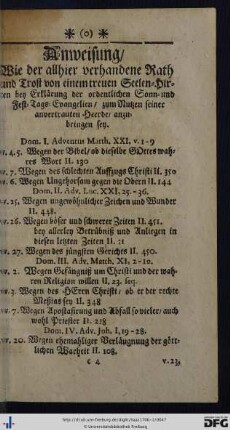 (o)
Anweisung/
Wie der allhier verhandene Rath
und Trost von einem treuen Seelen-Hir-
ten bey Erklärung der ordentlichen Sonn- und
Fest-Tags-Evangelien/ zum Nutzen seiner
anvertrauten Heerde/ anzu-
bringen sey.
Dom. I. Adventus Matth. XXI. v. 1-9
vv. 4. 5. Wegen der Bibel/ ob dieselbe GOttes wah-
res Wort II. 130
vv. 7. Wegen des schlechten Auffzugs Christi II. 350
vv. 6. Wegen Ungehorsam gegen die Obern II. 144
Dom. II. Adv. Luc. XXI. 25.-36.
vv. 25. Wegen ungewöhnlicher Zeichen und Wunder
II. 448.
vv. 26. Wegen böser und schwerer Zeiten II. 451.
bey allerley Betrübniß und Anliegen in
diesen letzten Zeiten II.
vv. 27. Wegen des jüngsten Gerichts II. 450.
Dom. III. Adv. Matth. XI. 2-10.
vv. 2. Wegen Gefängniß um Christi und der wah-
ren Religion willen II. 23. seq.
vv. 3. Wegen des HErrn Christi/ ob er der rechte
Messias sey II. 348
vv. 7. Wegen Apostasirung und Abfall so vieler/ auch
wohl Priester II. 218
Dom. IV. Adv. Joh. I, 19-28.
vv. 20. Wegen ehemahliger Verläugnung der gött-
lichen Warheit II. 108.
c 4 v. 23.
© Universitätsbibliothek Freiburg
DFG